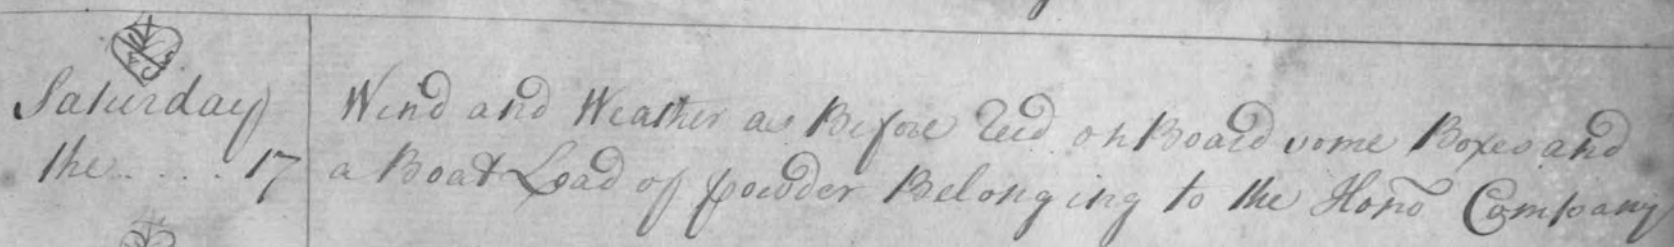 Saturday
the . . . . 17
Wind and Weather as Before Recd on Board some Boxes and
a Boat Load of powder Belonging to the Hono Company